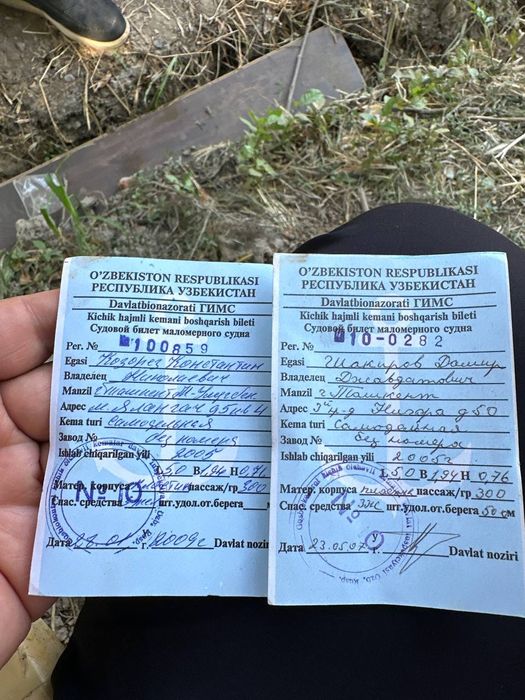 O'ZBEKISTON RESPUBLIKASI
РЕСПУБЛИКА УЗБЕКИСТАН
Davlatbionazorati ГИМС
Kichik hajmli kemani boshqarish bileti
Судовой билет маломерного судна
Рег. № 100859
Egasi Козонез Константин
Владелец Николаевич
Manzil
Адрес
Kema turi самодельная
Завод № без номера
Ishlab chiqarilgan yili 2005
1,50 В 1,94 Н 0,76
Матер. корпуса пассаж/гр 300
Спас. средства шт.удол.от берега
№ 10
Дата г. 2009г Davlat noziri
O'ZBEKISTON RESPUBLIKASI
РЕСПУБЛИКА УЗБЕКИСТАН
Davlatbionazorati ГИМС
Kichik hajmli kemani boshqarish bileti
Судовой билет маломерного судна
Рег. № 10-0282
Egasi Шакиров Дамир
Владелец Джавдатович
Manzil г Ташкент
Адрес д 50
Kema turi Самодельная
Завод № Без номера
Ishlab chiqarilgan yili 2005г.
1,50 В 1,94 Н 0,76
Матер. корпуса пластик пассаж/гр 300
Спас. средства шт.удол.от берега 50 см
Дата 23.05.07 Davlat noziri